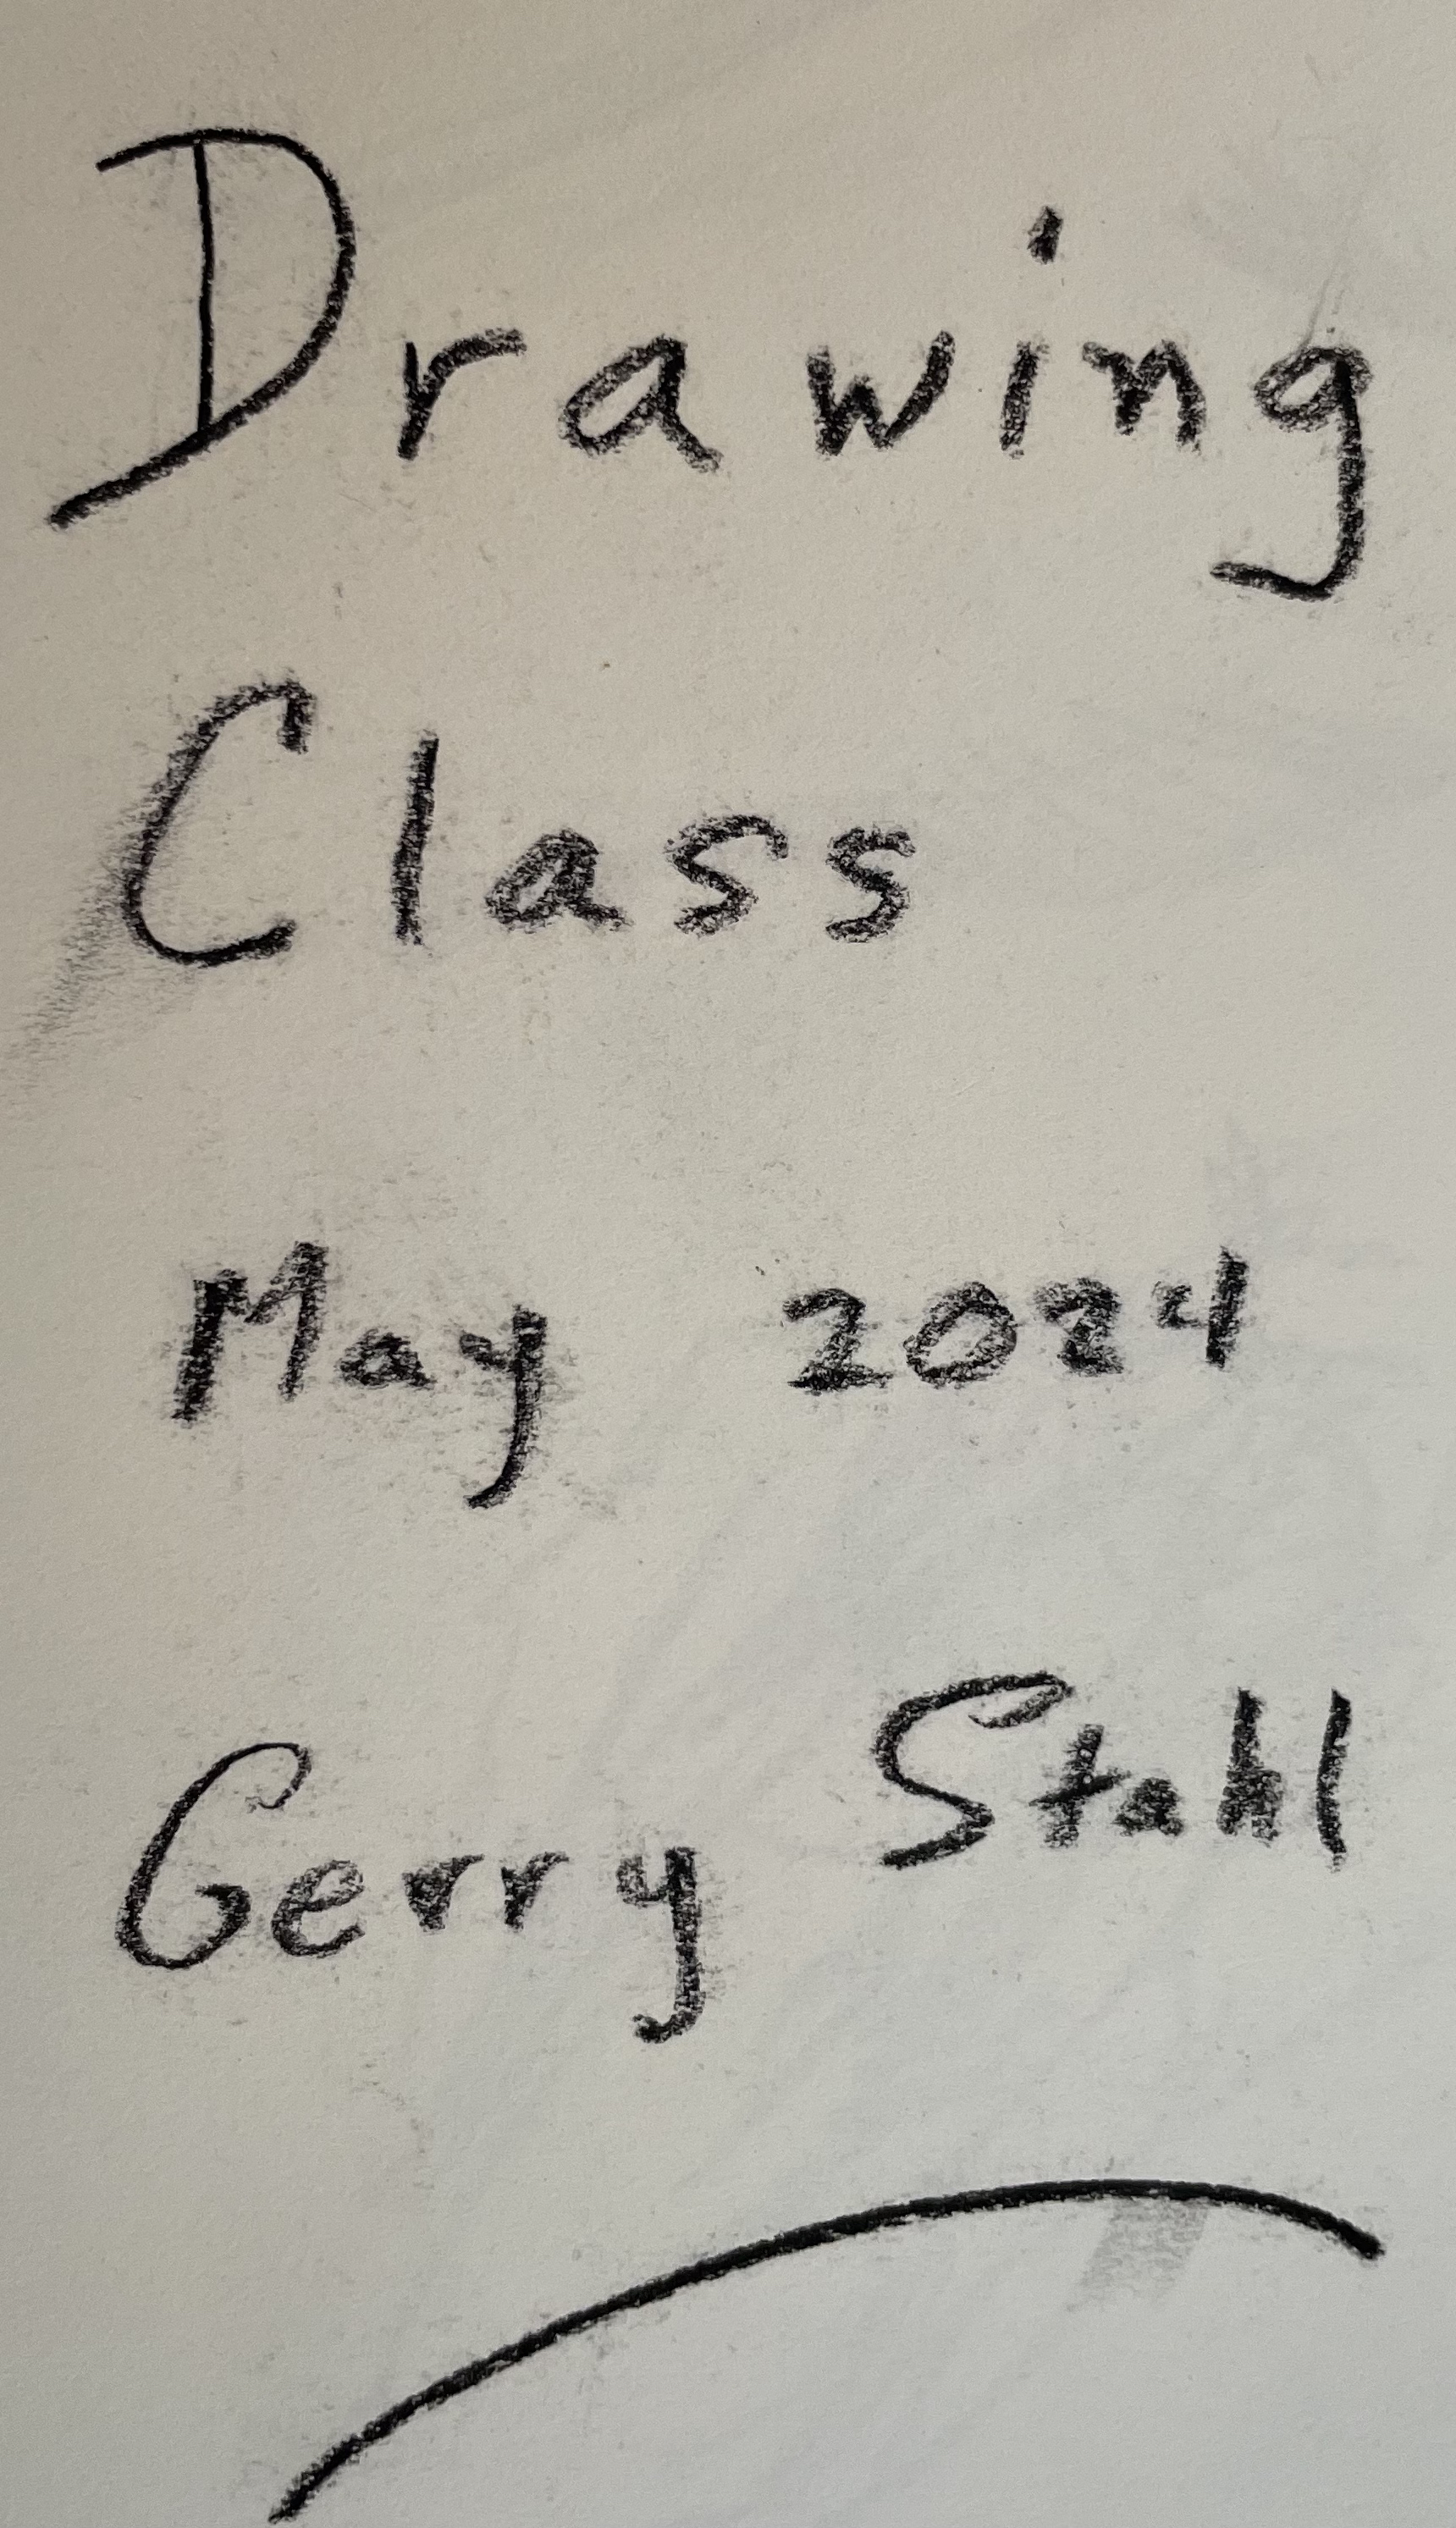 Drawing
Class
May 2024
Gerry Stahl